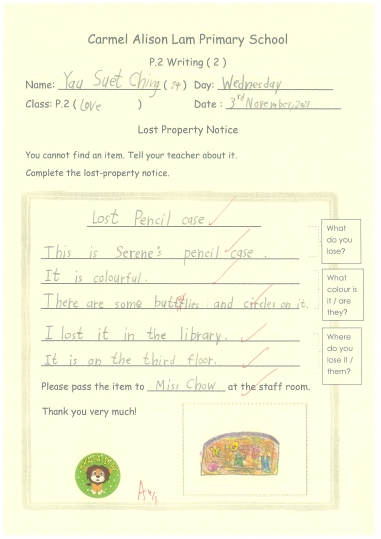 Carmel Alison Lam Primary School
P.2 Writing ( 2 )
Name: Yau Suet Ching ( 24 ) Day: Wednesday
Class: P.2 ( Love ) Date : 3rd November, 2021
Lost Property Notice
You cannot find an item. Tell your teacher about it.
Complete the lost-property notice.
Lost Pencil case
What do you lose?
This is Serene's pencil case .
It is colourful.
What colour is it / are they?
There are some butterflies and circles on it.
I lost it in the library.
Where do you lose it / them?
It is on the third floor.
Please pass the item to Miss Chow at the staff room.
Thank you very much!